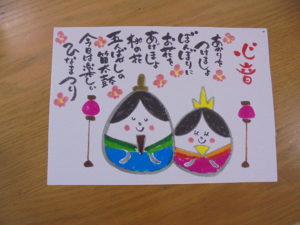 心音
あかりを
つけましょ
ぼんぼりに
お花を
あげましょ
桃の花
五人ばやしの
笛太鼓
今日は楽しい
ひなまつり